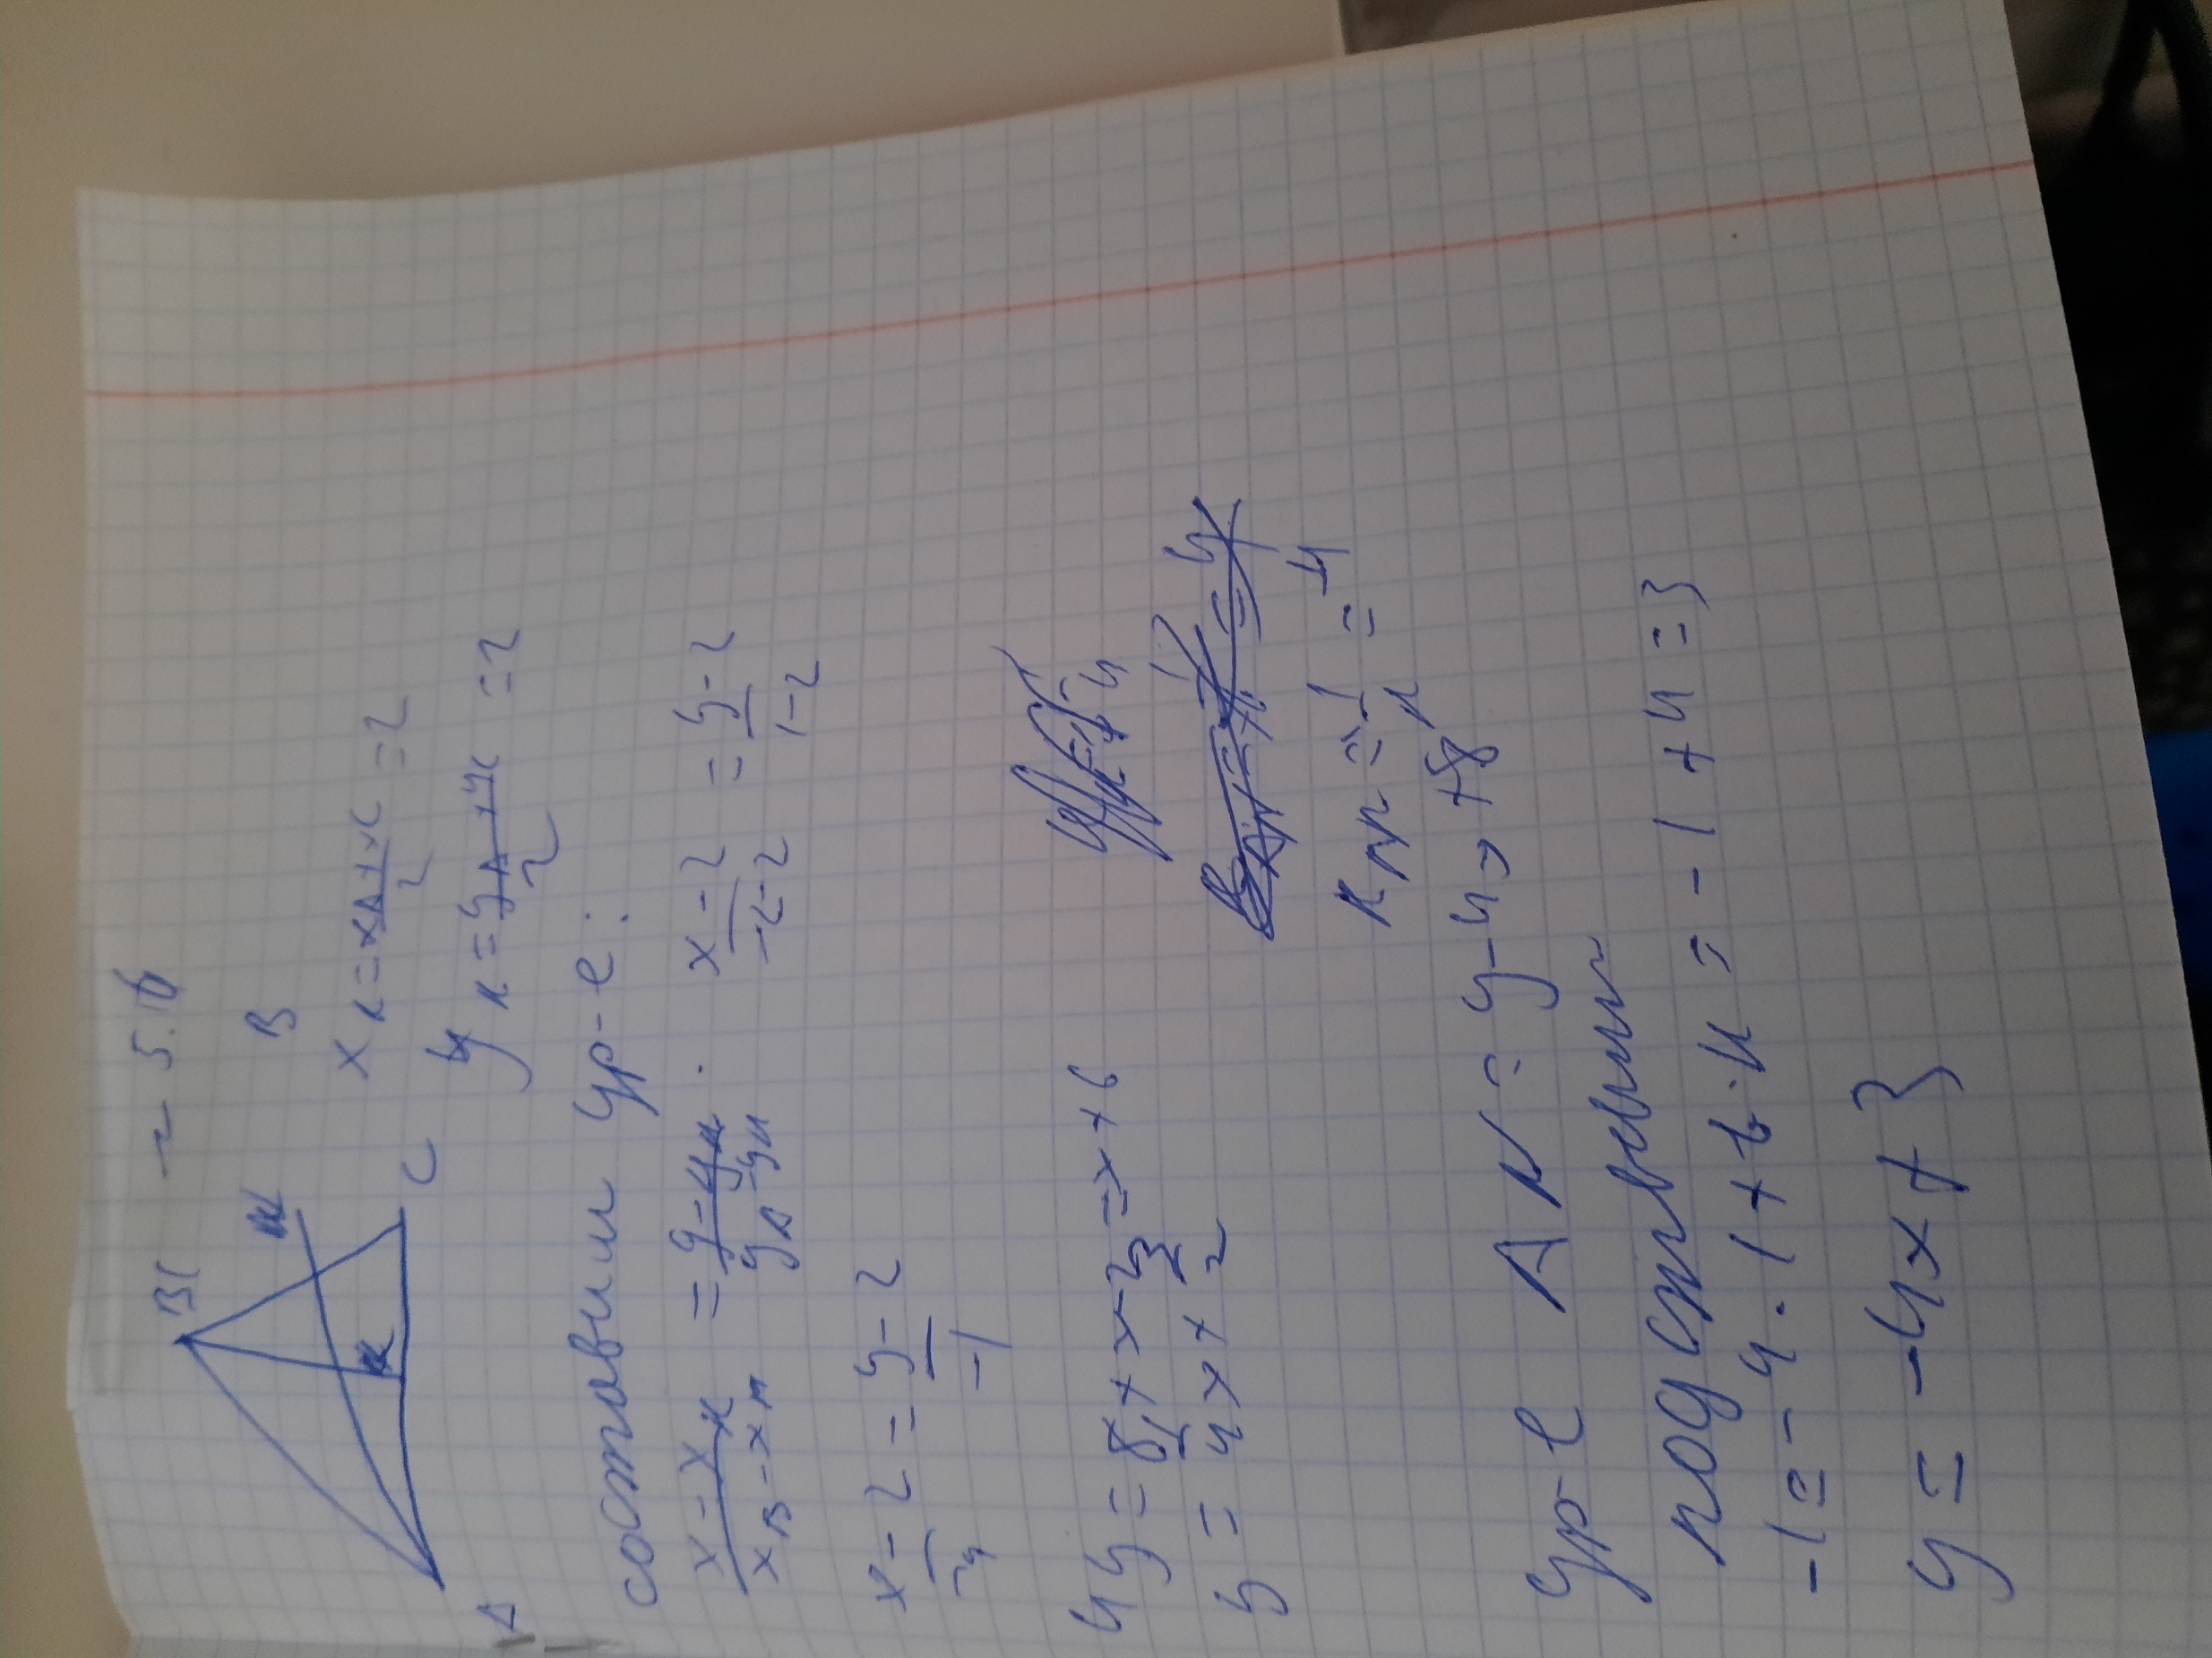 B( ~ 5.16
N B
K
A C
x_K = (x_A + x_C)/2 = 2
y_K = (y_A + y_C)/2 = 2
составим ур-е:
(x - x_K)/(x_B - x_A) = (y - y_K)/(y_A - y_K) . (x - 2)/(-2-2) = (y-2)/(1-2)
(x - 2)/(-4) = (y - 2)/(-1)
4y = 8 + x - 2 = x + 6
y = 1/4 x + 3/2
K_AN = -1/K = -4
ур-е AN = y - 4x + 8
подставим
-1 = -4 · 1 + b · K = -1 + 4 = 3
y = -4x + 3